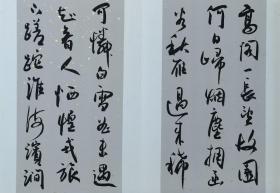 高閣一長望故園
何日歸烟塵擁函
谷秋雁過來稀
可憐白雪曲未遇
知音人恓惶戎旅
下蹉跎淮海濱澗